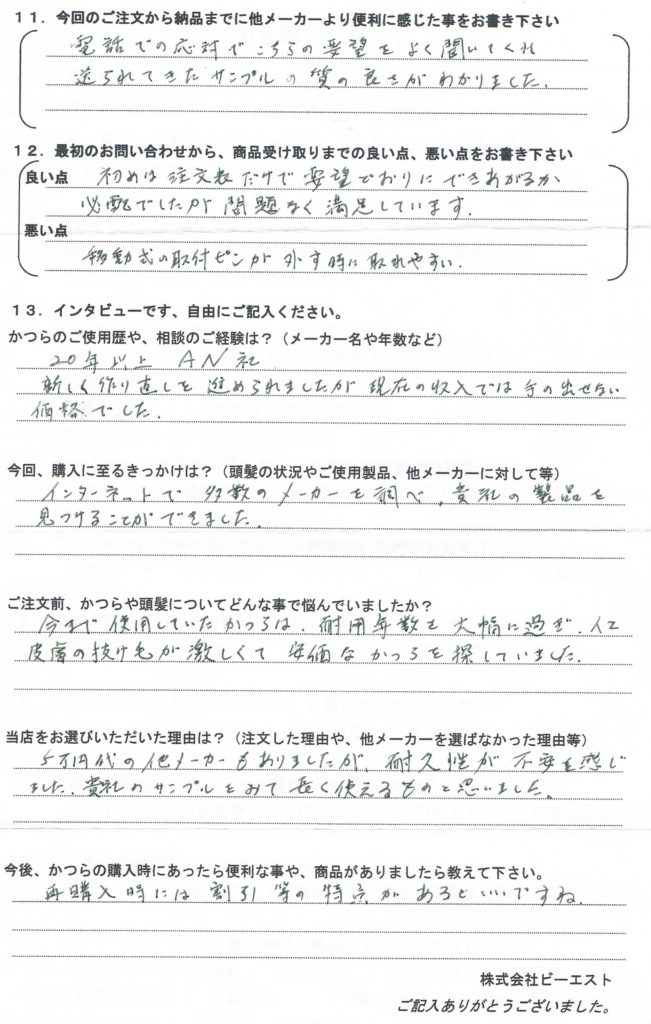 11．今回のご注文から納品までに他メーカーより便利に感じた事をお書き下さい
電話での応対でこちらの要望をよく聞いてくれ
送られてきたサンプルの質の良さがわかりました.
12．最初のお問い合わせから、商品受け取りまでの良い点、悪い点をお書き下さい
良い点 初めは注文表だけで要望どおりにできあがるか
心配でしたが問題なく満足しています.
悪い点
移動式の取付ピンが外す時に取れやすい.
13．インタビューです、自由にご記入ください。
かつらのご使用歴や、相談のご経験は？（メーカー名や年数など）
20年以上 AN社
新しく作り直しを進められましたが現在の収入では手の出せない
価格でした.
今回、購入に至るきっかけは？（頭髪の状況やご使用製品、他メーカーに対して等）
インターネットで多数のメーカーを調べ、貴社の製品を
見つけることができました.
ご注文前、かつらや頭髪についてどんな事で悩んでいましたか？
今まで使用していたかつらは、耐用年数を大幅に過ぎ、人工
皮膚の抜け毛が激しくて安価なかつらを探していました.
当店をお選びいただいた理由は？（注文した理由や、他メーカーを選ばなかった理由等）
5万円代の他メーカーもありましたが、耐久性が不安を感じ
ました. 貴社のサンプルをみて長く使えるものと思いました.
今後、かつらの購入時にあったら便利な事や、商品がありましたら教えて下さい。
再購入時には割引等の特点があるといいですね.
株式会社ビーエスト
ご記入ありがとうございました。